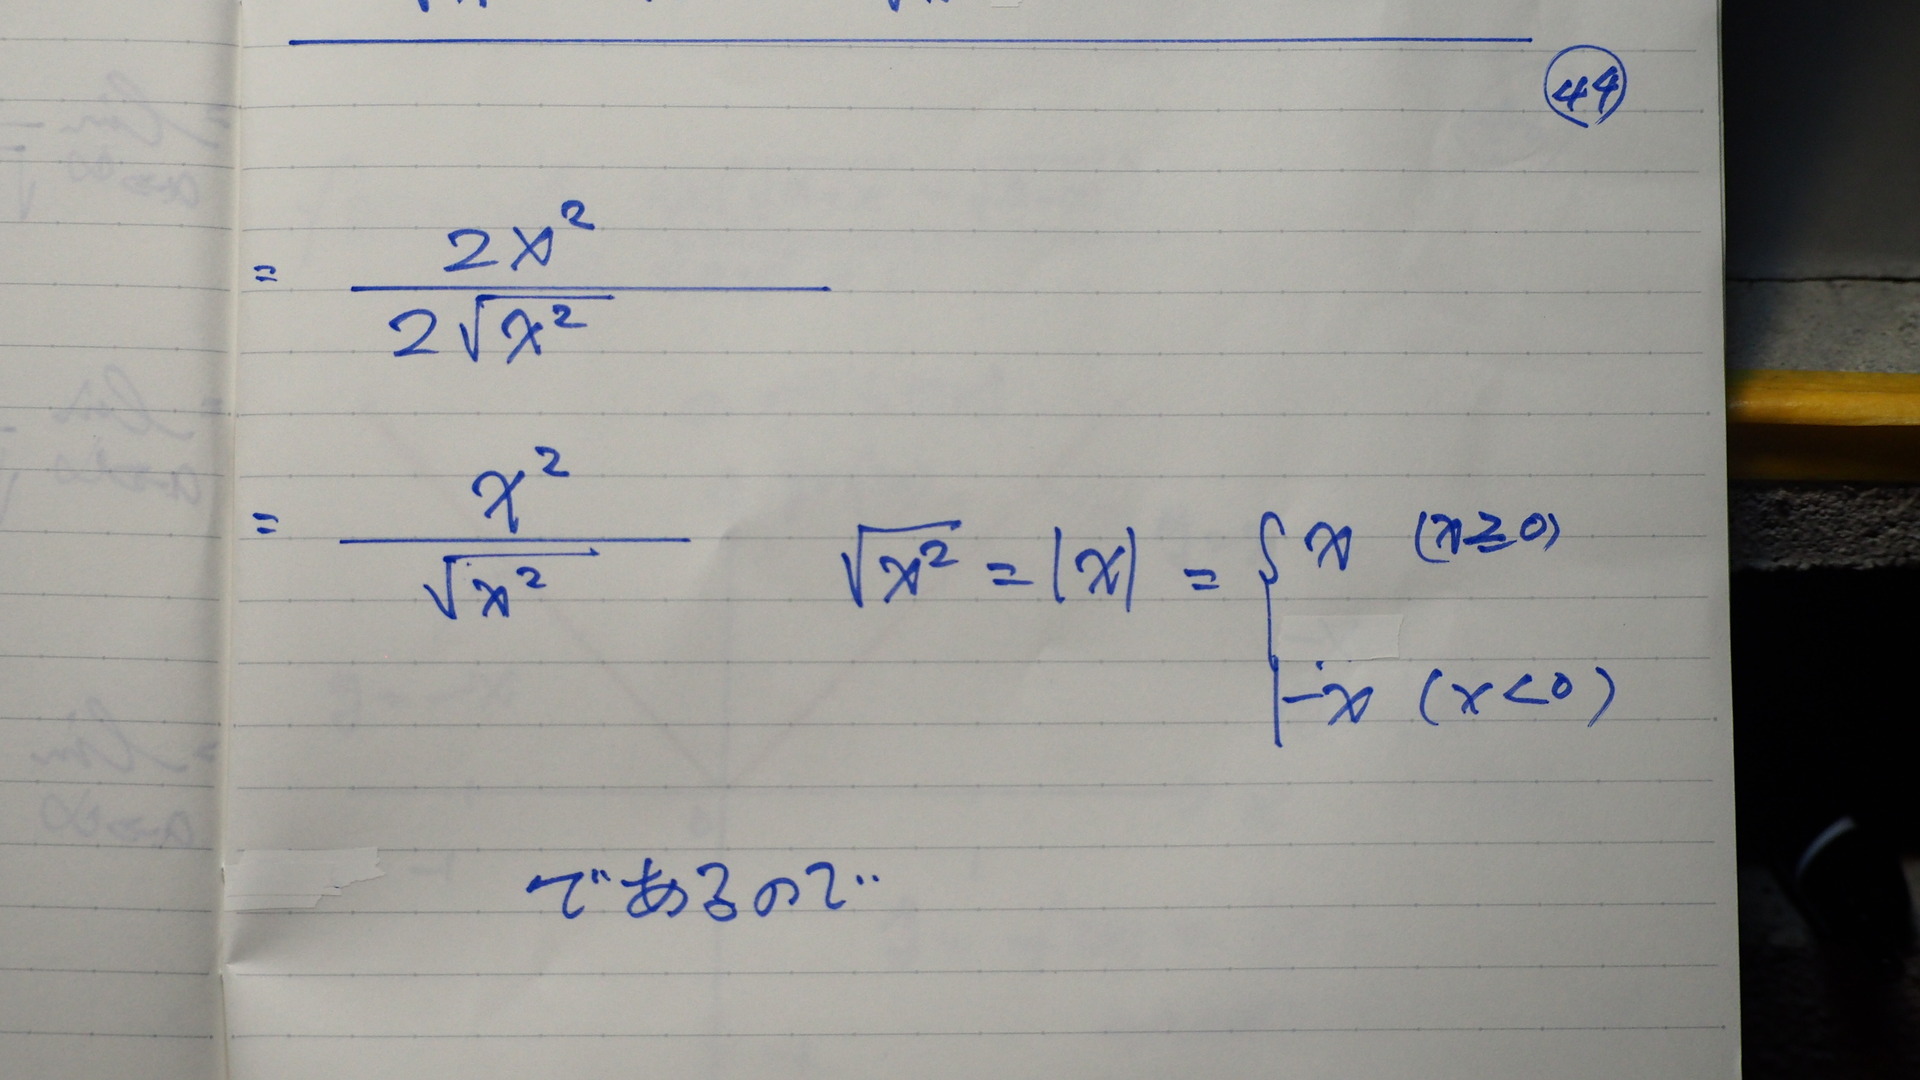 44
= 2x² / 2√x²
= x² / √x²  √x² = |x| = { x (x≧0)
-x (x<0)
であるので